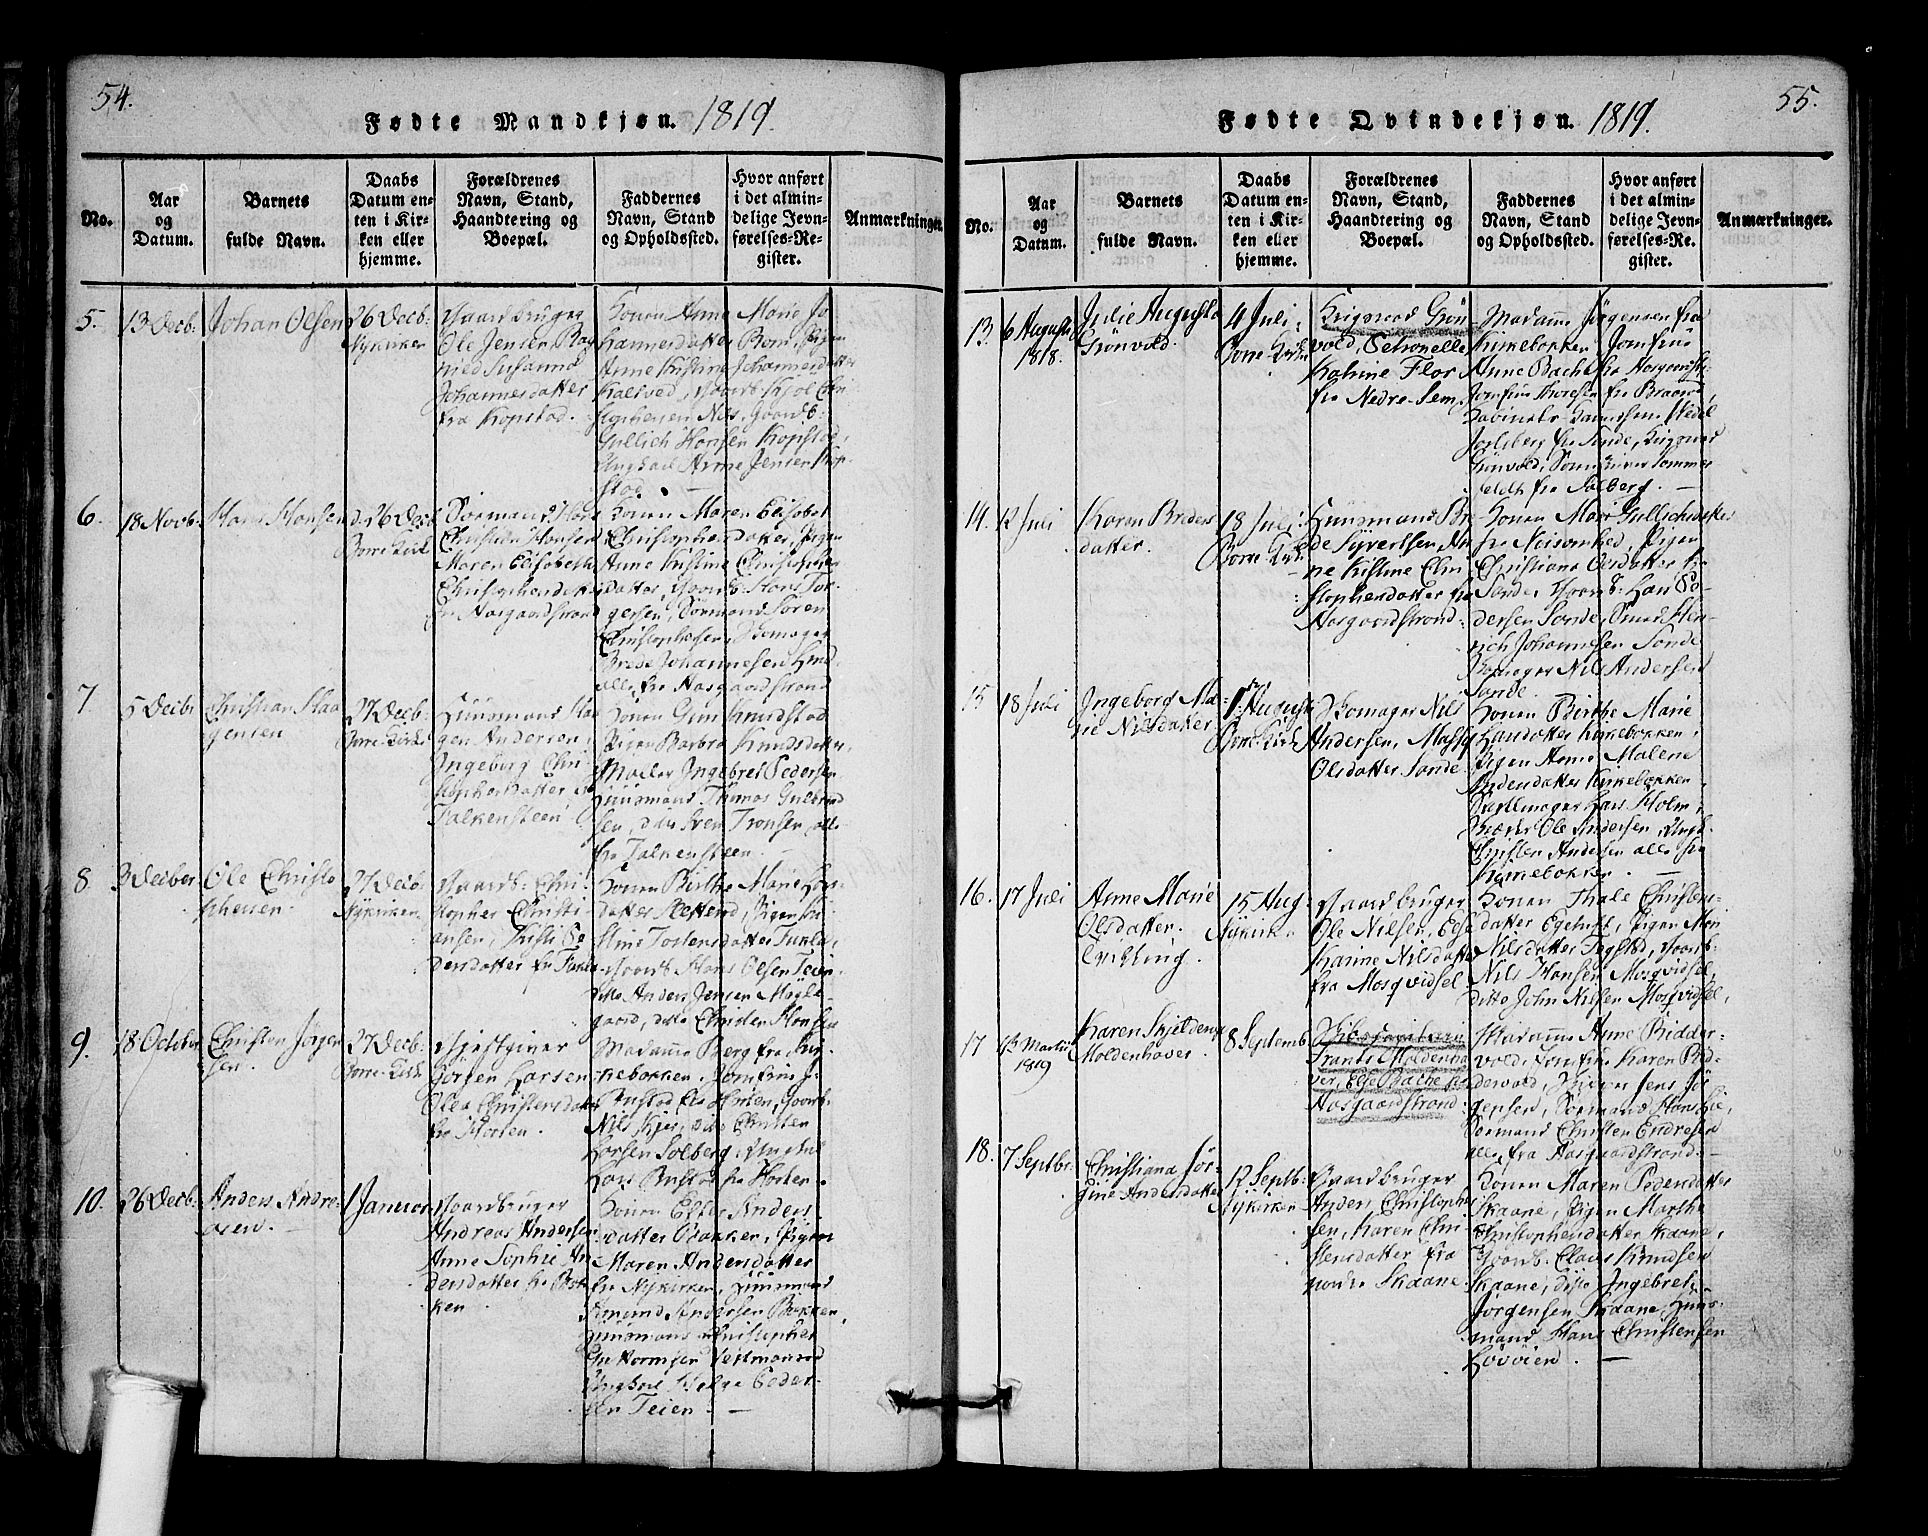 54.
Fødte Mandkjøn. 1819.
No.
Aar
og
Datum.
Barnets
fulde Navn.
Daabs
Datum en-
ten i Kir-
ken eller
hjemme.
Forældrenes
Navn, Stand,
Haandtering og
Boepæl.
Faddernes
Navn, Stand
og Opholdssted.
Hvor anført
i det almin-
delige Jevn-
førelses-Re-
gister.
Anmærkninger.
5.
13 Decb:
Johan Olsen
26 Decb:
Nykirken
Gaardbruger
Ole Jensen
Susanna
Johannesdatter
fra Kopstad.
Konen Anne Marie Jo
hannesdatter
Anne Kristine Johannesdatter
stophersen
Gullich Hansen Kopstad,
Ungkarl Arne Jensen Kop-
stad.
6.
18 Novb:
Hans Hansen
d. 26 Decb
Borre Kirk
Sørmand Hans
Christian Hansen
Maren Elisabeth
Christophersdatter
fra Aasgaardstrand
Konen Maren Elisabet
Christophersdatter, Pigen
Anne Kristine Christopher
datter, Gaardb: Hans Tor-
gersen, Sørmand Søren
Christophersen, Skomager
Brede Johannesen
alle fra Aasgaardstrand
7
5 Decbr
Christian Haa
gensen
27 Decb-
Borre Kirke
Huusmand Haa
gen Andersen,
Ingeborg Chri
stophersdatter fr
Falkensteen
Konen Gun Knudstad
Pigen Barbra Knudsdatter,
Møller Ingebret Pedersen
Huusmand Thomas Gulbrand
sen, ditto Sven Tronsen, alle
fra Falkensteen.
8
3 Decber
Ole Christo
phersen
27 Decb-
Nykirken
Gaardb: Chri-
stopher Christi
ansen, Kirsti Pe
dersdatter fr
Konen Birthe Marie Lars
datter
Tostensdatter
Gaardb Hans Olsen Teien
ditto Anders Jensen Møgle-
gaard, ditto Christen Hansen
9.
18 October
Christen Jørgen
sen.
27 Decb-
Borre Kirk
Gjestgiver
Jørgen Larsen
Olea Christensdatter
fra Horten.
Madame Berg fra Kir-
kebakken, Jomfru J.
Bustad fra Horten, Gaardb.
Nils Skjer, ditto Christen
Larsen Solberg, Ungkarl
Lars Bustad fra Horten.
10.
26 Decb.
Anders Andre-
asen.
1 Januar
Gaardbruger
Andreas Andersen
Anne Sophie An
dersdatter fra Bak
ken
Konen Ester Anders
datter Bakken, Pigen
Maren Andersdatter
fra Nykirken, Huusmand
Amund Andersen Bakken,
Huusmand Christopher
Ungkarl Helge Peder-
sen Teien. -
55.
Fødte Qvindekjøn. 1819.
No.
Aar
og
Datum.
Barnets
fulde Navn.
Daabs
Datum en-
ten i Kir-
ken eller
hjemme.
Forældrenes
Navn, Stand,
Haandtering og
Boepæl.
Faddernes
Navn, Stand
og Opholdssted.
Hvor anført
i det almin-
delige Jevn-
førelses-Re-
gister.
Anmærkninger.
13.
6 Augusti
1818.
Julie Augusta
Grønvold.
4 Juli:
Borre Kirke
Krigsraad Grøn-
vold, Petronelle
Katrine Flor
fra Nedre-Sem,
Madame Jørgensen fra
Kirkebakken, Jomfrue
Anne Bache fra Aasgaardstr.
Jomfrue Thoresen fra
Jarlsberg fra Sande, Krigsraad
Grønvold, Sommer
feldt fra Solberg. -
14.
12 Juli
Karen Breders
datter.
18 Juli:
Borre Kirke
Huusmand Bre
de Syvertsen, An
ne Kistine Chri
stophersdatter fra
Aasgaardstrand.
Konen Mari Gullichsdatter
fra Nøisomhed, Pigen
Christiane Olsdatter fra
Sande, Gaardb: Hans Pe-
dersen Sande, Hen-
rich Johannesen Sande
Skomager Nils Andersen
Sande.
15
18 Juli
Ingeborg Ma-
rie Nilsdatter
1ste August
Borre Kirk
Skomager Nils
Andersen,
Olsdatter Sande
Konen Birthe Marie
Larsdatter Kirkebakken,
Pigen Anne Malene
Andersdatter Kirkebakken,
Sadelmager Lars Holm,
Ole Andersen, Ungk.
Christen Andersen alle fra
Kirkebakken. -
16.
17 Juli
Anne Marie
Olsdatter.
Tvilling.
15 Aug:
Nykirken
Gaardbruger
Ole Nilsen,
Karine Nilsdatter
fra Mosqvidsel
Konen Thale Christens-
datter Egetuft, Pigen Mari
Nilsdatter Tegstad, Gaardb-
Nils Hansen Mosqvidsel,
ditto John Nilsen Mosqvidsel,
17
13 Marti
1819
Karen Skjelderup
Moldenhover.
8 Septemb
Frants Moldenho
ver, Else Bache fra
Aasgaardstrand.
Madame Anne Ridder-
vold, Jomfru Karen Rid-
dervold, Skipper Jens Jør
gensen, Sørmand Hans Lie,
Sørmand Christen Endresen
alle fra Aasgaardstrand. -
18.
7 Septbr
Christiana Jør-
gine Andersdatter
12 Septb-
Nykirken
Gaardbruger
Anders Christopher
sen, Karen Chri-
stensdatter fra
nordre Skaane.
Konen Maren Pedersdatter
Skaane, Pigen Marthe
Christophersdatter Skaane,
Gaardb. Claus Knudsen
Skaane, ditto Ingebret
Jørgensen Skaane, Huus-
mand Hans Christensen
Løvøien. -